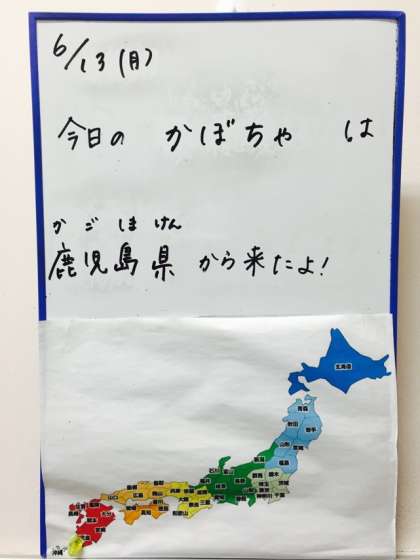 6/13(月)
今日の かぼちゃ は
かごしまけん
鹿児島県 から来たよ!
北海道
青森
秋田
岩手
山形
宮城
福島
新潟
石川
富山
群馬
栃木
茨城
千葉
神奈川
福井
長野
岐阜
鳥取
島根
岡山
広島
山口
香川
愛媛
高知
徳島
兵庫
京都
滋賀
大阪
三重
和歌山
福岡
佐賀
長崎
大分
熊本
宮崎
沖縄